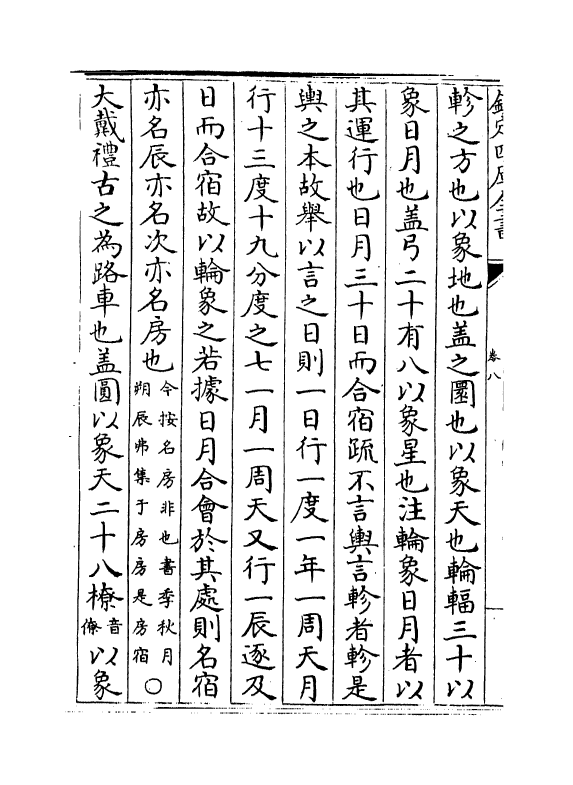 欽定四庫全書
卷八
軫之方也以象地也盖之圜也以象天也輪輻三十以
象日月也盖弓二十有八以象星也注輪象日月者以
其運行也日月三十日而合宿疏不言輿言軫者軫是
輿之本故舉以言之日則一日行一度一年一周天月
行十三度十九分度之七一月一周天又行一辰逐及
日而合宿故以輪象之若據日月合會於其處則名宿
亦名辰亦名次亦名房也今按名房非也書季秋月朔辰弗集于房房是房宿○
大戴禮古之為路車也盖圓以象天二十八橑音僚以象